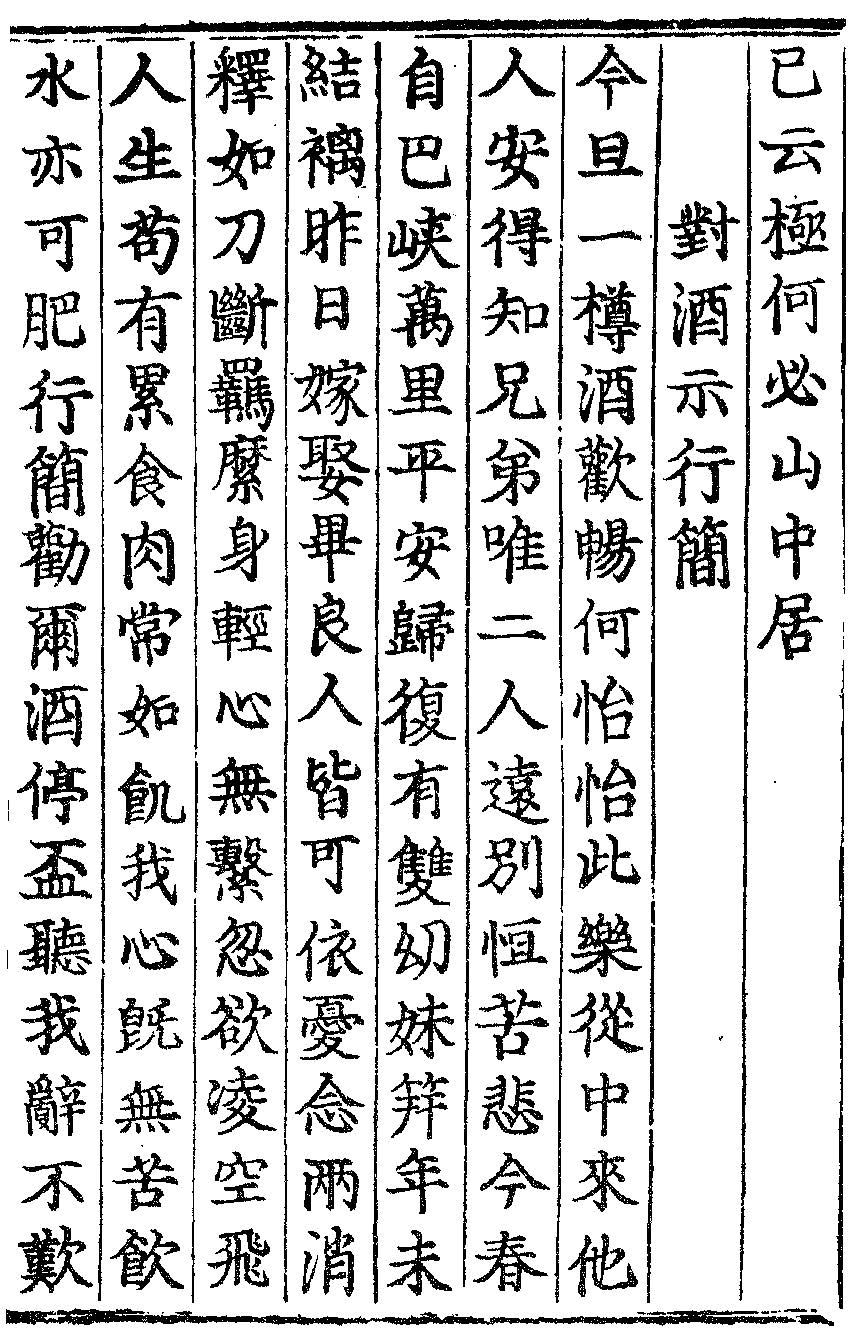 已云極何必山中居
對酒示行簡
今旦一樽酒歡暢何怡怡此樂從中來他
人安得知兄弟唯二人遠別恒苦悲今春
自巴峽萬里平安歸復有雙幼妹笄年未
結褵昨日嫁娶畢良人皆可依憂念兩消
釋如刀斷羈縻身輕心無繫忽欲凌空飛
人生苟有累食肉常如飢我心旣無苦飲
水亦可肥行簡勸爾酒停盃聽我辭不歎